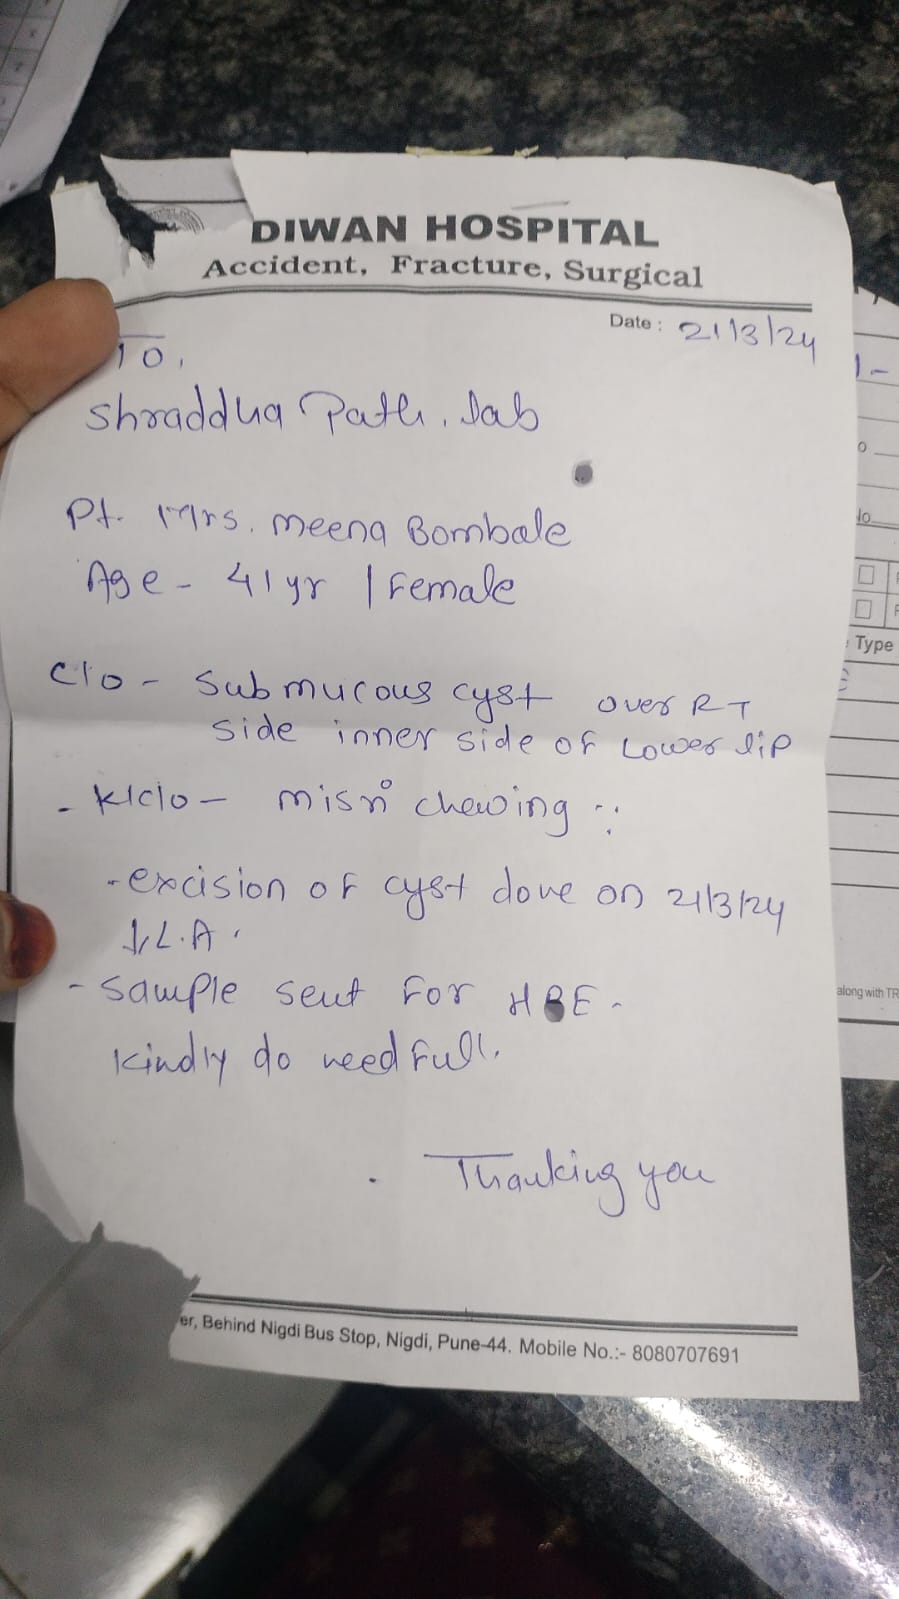 DIWAN HOSPITAL
Accident, Fracture, Surgical
Date : 21/3/24
To,
Shraddha Path. Lab
Pt. Mrs. Meena Bombale
Age - 41 yr / Female
C/o - Submucous cyst over RT
side inner side of Lower lip
- K/C/O - chewing
- excision of cyst done on 21/3/24
L.A.
- Sample sent for HPE.
Kindly do needfull.
Thanking you
er, Behind Nigdi Bus Stop, Nigdi, Pune-44. Mobile No.:- 8080707691
Type
along with TR